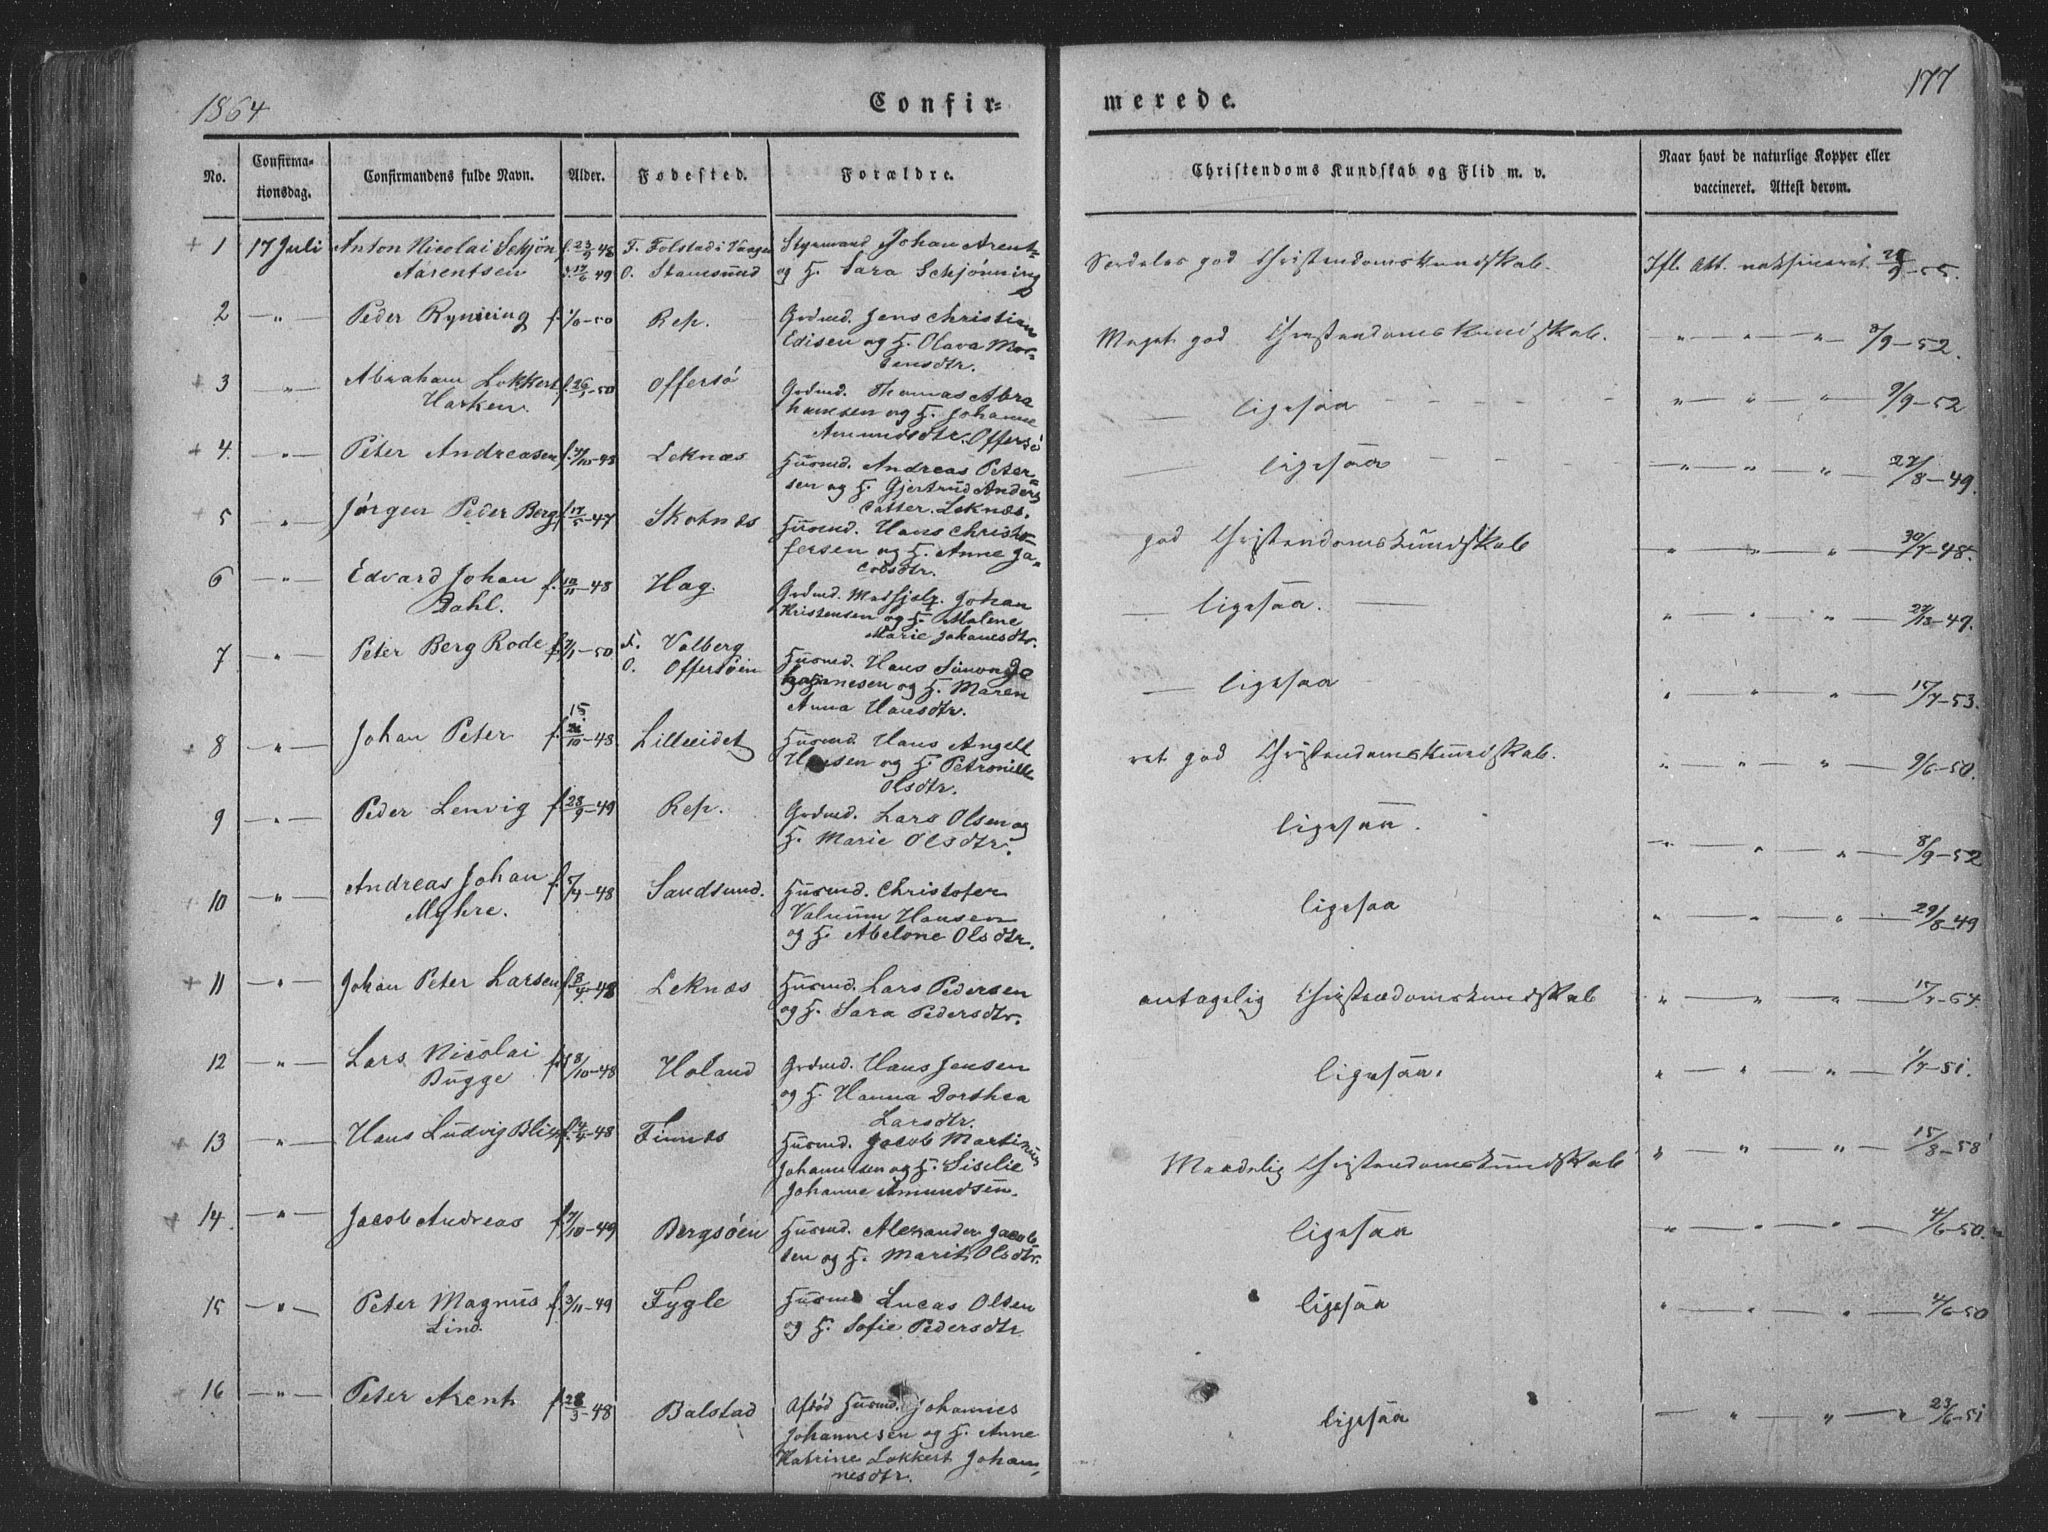 1864
Confir=
merede.
177
No.
Confirma-
tionsdag.
Confirmandens fulde Navn.
Alder.
Fødested.
Forældre.
Christendoms Kundskab og Flid m. v.
Naar havt de naturlige Kopper eller
vaccineret. Attest derom.
+ 1 17 Juli Anton Nicolai Schjön f. 23/9 48 F. Folstad i Vaagen Styrmand Johan Arent-
Aarentsen d. 17/6 49 O. Stamsund og H. Sara Schjönning
Særdeles god Christendomskundskab. Ifl. Att. vaksineret 9-55.
2 — " — Peder Rynning f. Rep. Grdmd. Jens Christian
Edisen og H. Olava Mor-
tensdtr.
Meget god Christendomskundskab. " — " — " — 8/9-52.
+ 3 " — Abraham Lokkert f. 26/ -50 Offersö Grdmd. Thomas Abra
Harken. hamsen og H. Johanne
Amundsdtr. Offersö
— ligesaa - - - - " " " — 9/9-52
+ 4. — " — Peter Andreasen f. /10-48 Leknæs Husmd. Andreas Peter-
sen og H. Gjertrud Anders
datter. Leknæs.
— ligesaa - - - " — " — " — 27/8-49.
+ 5 — " — Jörgen Peder Berg f. 17/5-47 Skotnæs Husmd. Hans Christo
fersen og H. Anne Ja-
cobsdtr.
god Christendomskundskab " — " — " — 30/7-48.
6 — " — Edvard Johan f. 10/11-48 Hag. Grdmd. Medhjelp. Johan
Dahl. Kristensen og H. Malene
Marie Johanesdtr.
— ligesaa. — " — " — " — -49.
7 — " — Peter Berg Rode f. 7/1-50 F. Valberg
O. Offersöen Husmd. Hans Simon Jo
hannesen og H. Maren
Anna Hansdtr.
— ligesaa " — " — " — 17/7-53.
+ 8 — " — Johan Peter f. 15/10-48 Lilleeidet Husmd. Hans Angell
Hansen og H. Petronille
Olsdtr.
ret god Christendomskundskab. " — " — " — 9/6-50.
9 — " — Peder Lenvig f. 28/9-49 Rep. Grdmd. Lars Olsen og
H. Marie Olsdtr.
ligesaa. — " — " — " — 8/9-52
+ 10 — " — Andreas Johan f. 7/4-48 Sandsund. Husmd. Christofer
Myhre. Hansen
og H. Abelone Olsdtr.
ligesaa " — " — " — 29/8-49
+ 11 — " — Johan Peter Larsen f. 8/4-48 Leknæs Husmd. Lars Pedersen
og H. Sara Pedersdtr.
antagelig Christendomskundskab " — " — " — 17/7-64.
12 — " — Lars Nicolai f. 8/10-48 Holand Grdmd. Hans Jensen
Bugge og H. Hanna Dorthea
Larsdtr.
ligesaa. " — " — " — 1/7-51.
+ 13 — " — Hans Ludvig Blix f. /4-48 Finnæs Husmd. Jacob Martinus
Johannesen og H. Siselie
Johanne Amundsen.
Maadelig Christendomskundskab " — " — " — 15/8-58
+ 14. — " — Jacob Andreas f. 7/10-49 Bergsöen Husmd. Alexander Jacob-
sen og H. Marit Olsdtr.
ligesaa " — " — " — 4/6-50.
15 — " — Peter Magnus f. 3/11-49 Fygle Husmd Lucas Olsen
Lind. og H. Sofie Pedersdtr
ligesaa " — " — " — 4/6-50
16 — " — Peter Arent f. 28/3-48 Balstad Afdöd Husmd. Johannes
Johannesen og H. Anne
Katrine Lokkert Johan-
nesdtr.
ligesaa — " — " — " 23/6-51